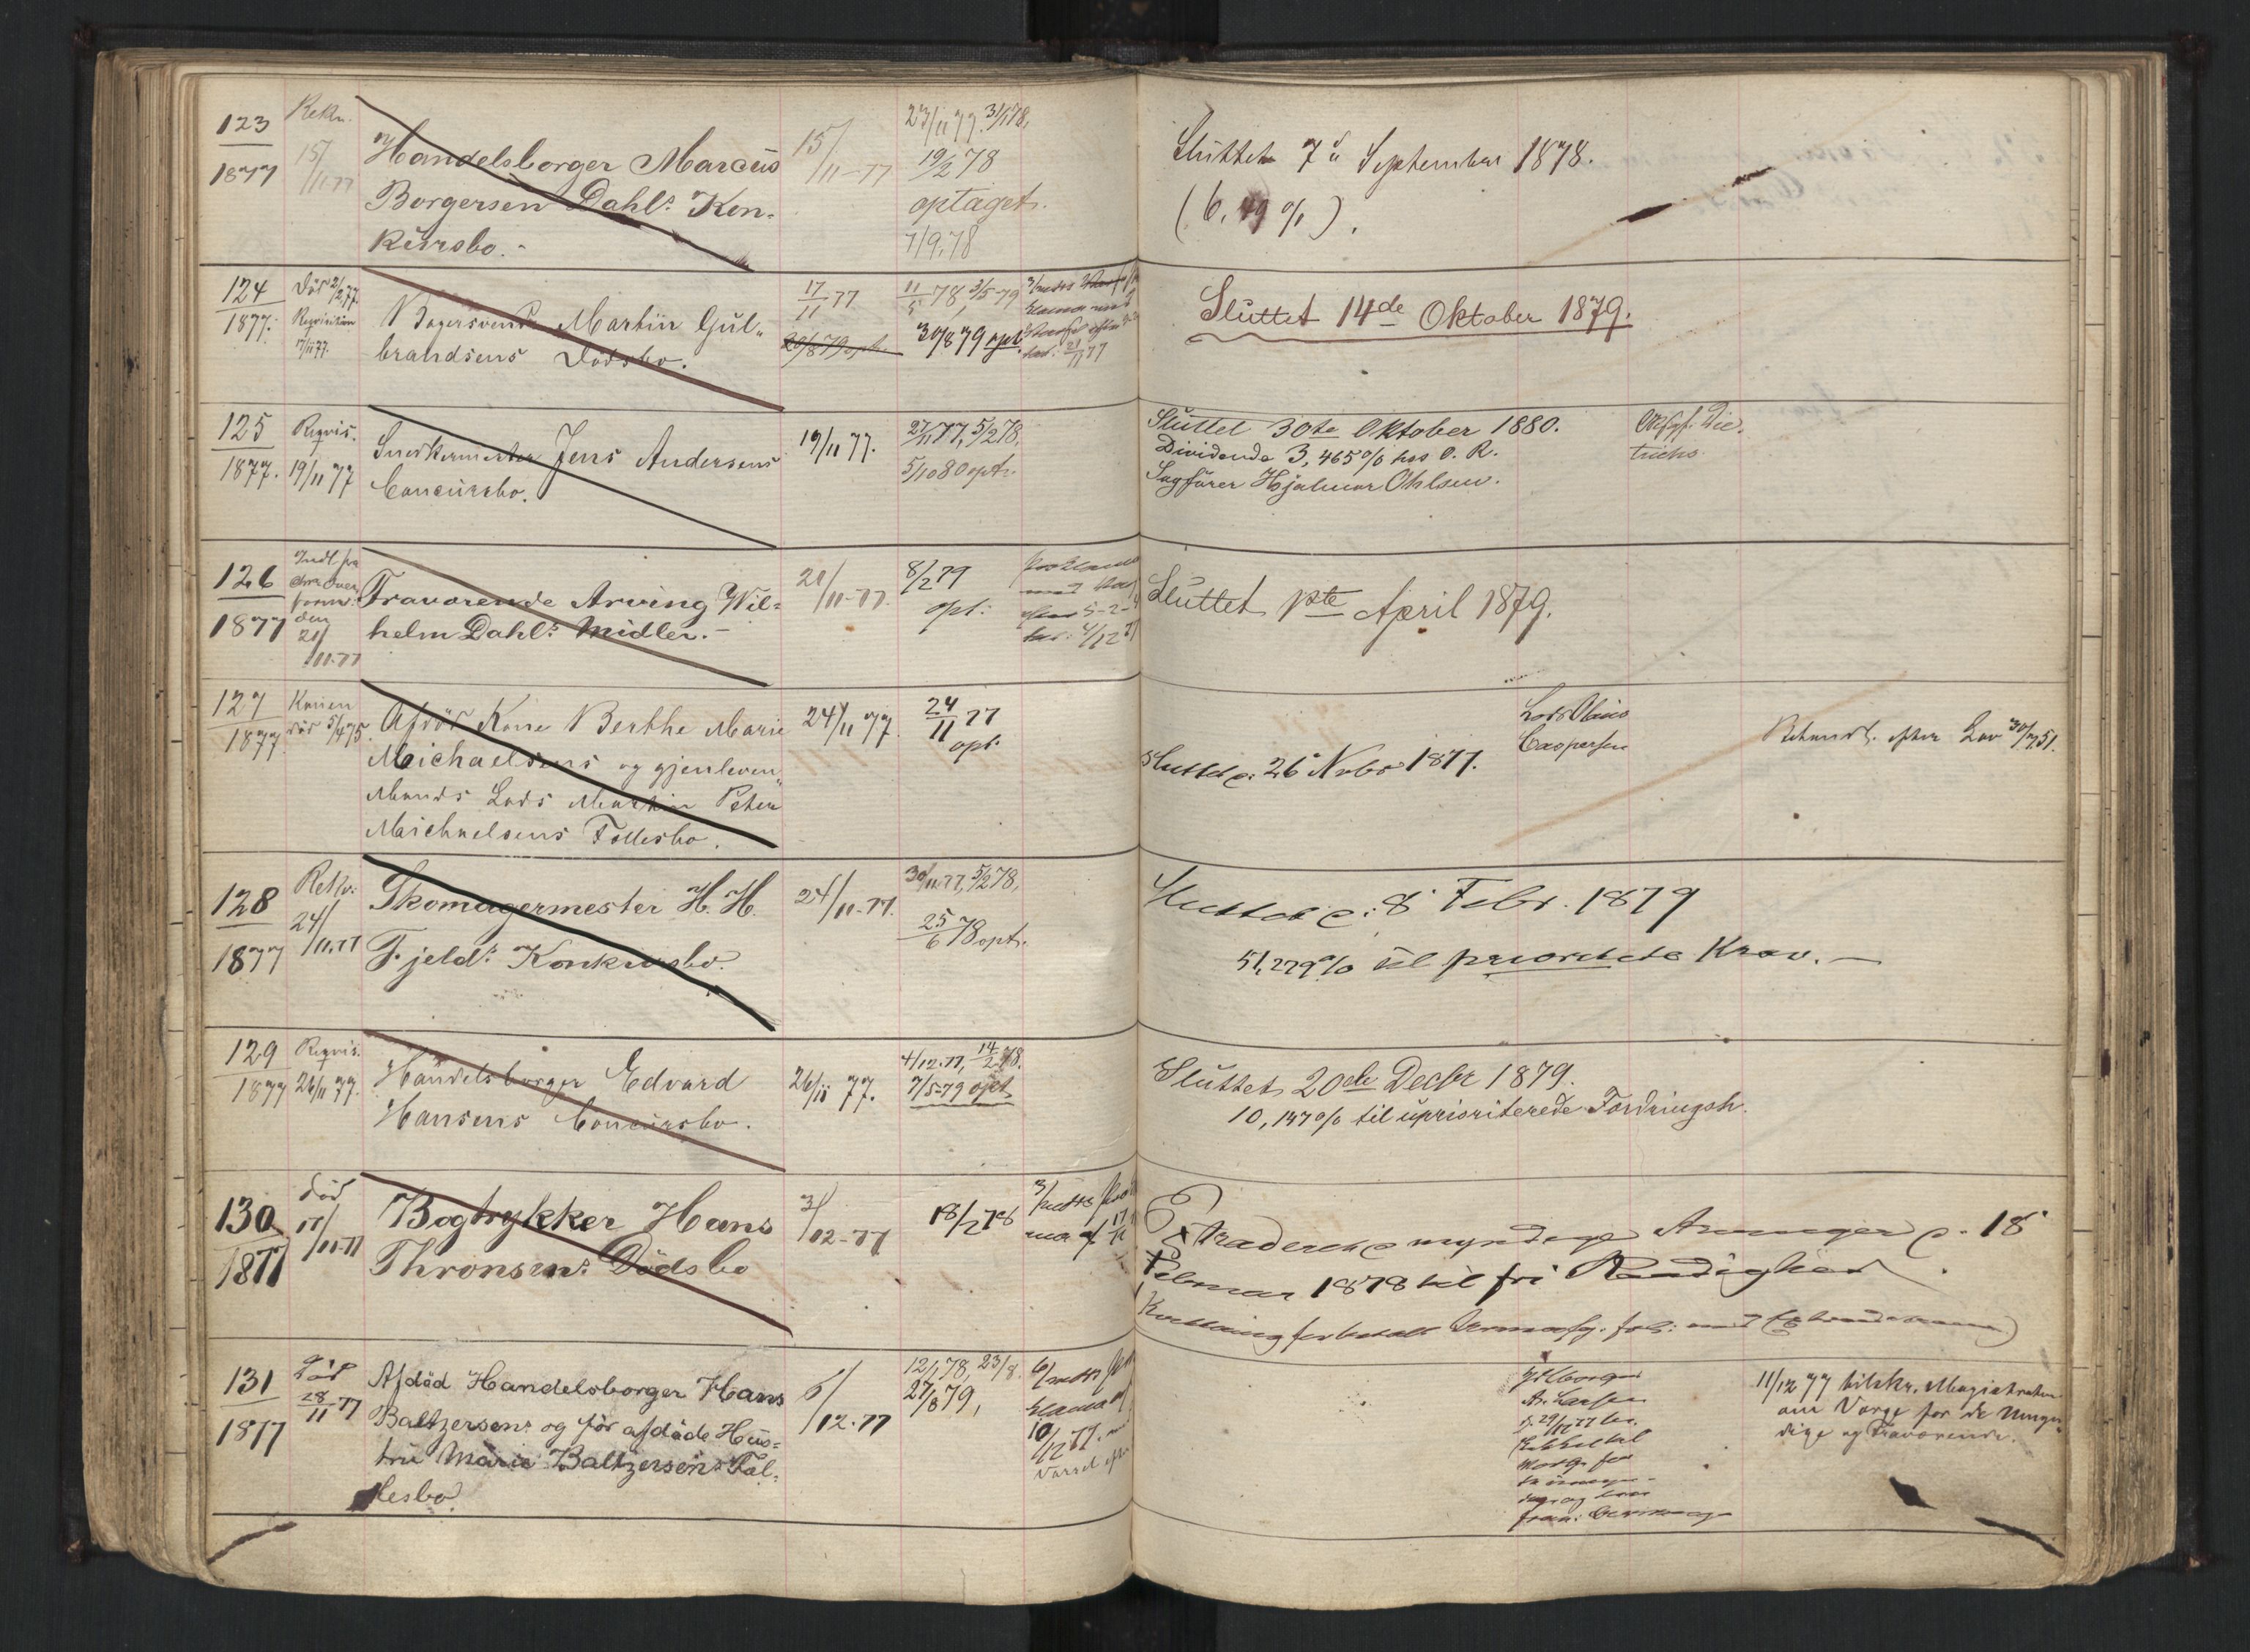 123
1877
Rekv.
15/11-77
Handelsborger Marcus
Borgersen Dahls Kon-
kursbo.-
15/11-77
23/11 77. 31/1 78,
19/2 78
optaget.
7/9.78
Sluttet 7d September 1878.
(6,49 %).
124
1877.
Död 2/2 77.
Reqvisition
17/11 77.
Bagersvend Martin Gul-
brandsens Dödsbo.
17/11 77
20/8 79 opt.
11/5 78, 3/5-79
30/8 79 opt.
21/11 77
Sluttet 14de Oktober 1879.
125
1877.
Reqvis.
19/11 77
Snedkermester Jens Andersens
Concursbo.
19/11 77.
27/11 77, 5/2 78,
5/10 80 opt.
Sluttet 30te Oktober 1880.
Dividende 3,465 % hos O. R.
Sagförer Hjalmar Ohlsen.
Die-
trichs
126
1877
Indl. fra
Over
form.
den
21/11-77
Fraværende Arving Wil-
helm Dahls Midler.-
21/11-77.
8/2 79
opt.
Proklama
med
Sluttet 1ste April 1879.
127
1877
Konen
död 5/4 75.
Afdöd Kone Berthe Marie
Michaelsens og gjenleven-
Mands Lods Martin Peter
Maichaelsens Fællesbo.
24/11 77.
24/11 77
opt.
Sluttet d. 26 Novbr 1877.
Lods Olaus
Caspersen
Behandl. efter Lov 30/7 51.
128
1877
Rekv:
24/11.77
Skomagermester H. H.
Fjelds Konkursbo.
24/11-77.
30/11.77, 5/2 78,
25/6 78 opt.
Sluttet d. 8 Febr. 1879
51,279 % til prioritete Krav.—
129
1877
Reqvis.
26/11 77.
Handelsborger Edvard
Hansens Concursbo.
26/11 77.
4/12.77, 14/2 78.
7/5-79 opt.
Sluttet 20de Decbr 1879.
10,147 % til uprioriterede Fordringsh.
130
1877
död
17/11-77
Bogtrykker Hans
Thronsens Dödsbo
3/12-77
18/2 78
Extraderet myndige Arvinger d. 18
Februar 1878 til fri Raadighed.
131
1877
Död
28/11-77
Afdöd Handelsborger Hans
Baltzersens og för afdöde Hus-
tru Marie Baltzersens Fæl-
lesbo.
6/12.77
12/1 78, 23/8
27/8 79,
10/12 77.
Varsel
29/12 77
11/12 77 tilskr. Magistraten
om Værge for de Umyn-
dige og Fraværende.